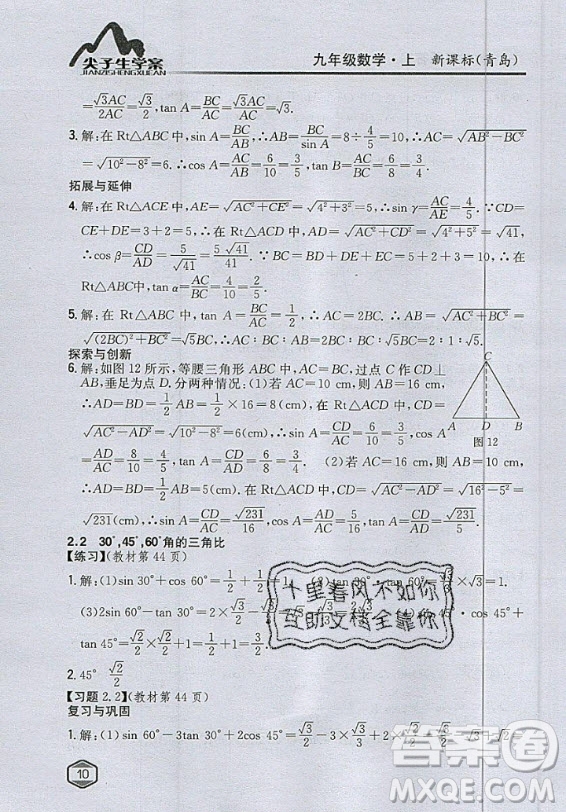 尖子生学案
JIANZISHENGXUEAN
九年级数学·上 新课标(青岛)
=√3AC/2AC=√3/2,tan A=BC/AC=√3AC/AC=√3.
3.解:在 Rt△ABC 中,sin A=BC/AB,∴AB=BC/sin A=8÷4/5=10,∴AC=√(AB²-BC²)
=√(10²-8²)=6.∴cos A=AC/AB=6/10=3/5,tan A=BC/AC=8/6=4/3.
拓展与延伸
4.解:在 Rt△ACE 中,AE=√(AC²+CE²)=√(4²+3²)=5,∴sin γ=AC/AE=4/5.∵CD=
CE+DE=3+2=5,∴在 Rt△ACD 中,AD=√(AC²+CD²)=√(4²+5²)=√41,
∴cos β=CD/AD=5/√41=5√41/41.∵BC=BD+CD=5+5=10,∴在 Rt△ABC
中,tan α=AC/BC=4/10=2/5.
5.解:在 Rt△ABC 中,∵tan A=BC/AC=1/2,∴AC=2BC,∴AB=√(AC²+BC²)
=√((2BC)²+BC²)=√5BC,∴AC∶BC∶AB=2BC∶BC∶√5BC=2∶1∶√5.
探索与创新
6.解:如图 12 所示,等腰三角形 ABC 中,过点 C 作 CD⊥
AB,垂足为点 D,则 AD=BD.(1)若 AC=10 cm,AB=16 cm,
∴AD=BD=1/2AB=1/2×16=8(cm).∴CD=
√(AC²-AD²)=√(10²-8²)=6(cm).∴sin A=CD/AC=6/10=3/5,
cos A=AD/AC=8/10=4/5,tan A=CD/AD=6/8=3/4.(2)若 AC=16 cm,AB=
10 cm,∴AD=BD=1/2AB=5(cm).在 Rt△ACD 中,CD=√(AC²-AD²)=√(16²-5²)=
√231(cm),∴sin A=CD/AC=√231/16,cos A=AD/AC=5/16,tan A=CD/AD=√231/5.
C
A D B
图 12
2.2 30°,45°,60°角的三角比
【练习】(教材第 44 页)
1.解:(1)sin 30°+cos 60°=1/2+1/2=1.
(3)2sin 60°
cos 45°+
tan 45°=√2/2+√2/2+1=√2+1.
2.45° √2/2
【习题 2.2】(教材第 44 页)
复习与巩固
1.解:(1)sin 60°-3tan 30°+2cos 60°=
10
十里春风不如你
互助文档全靠你
答案圈
MXQE.COM